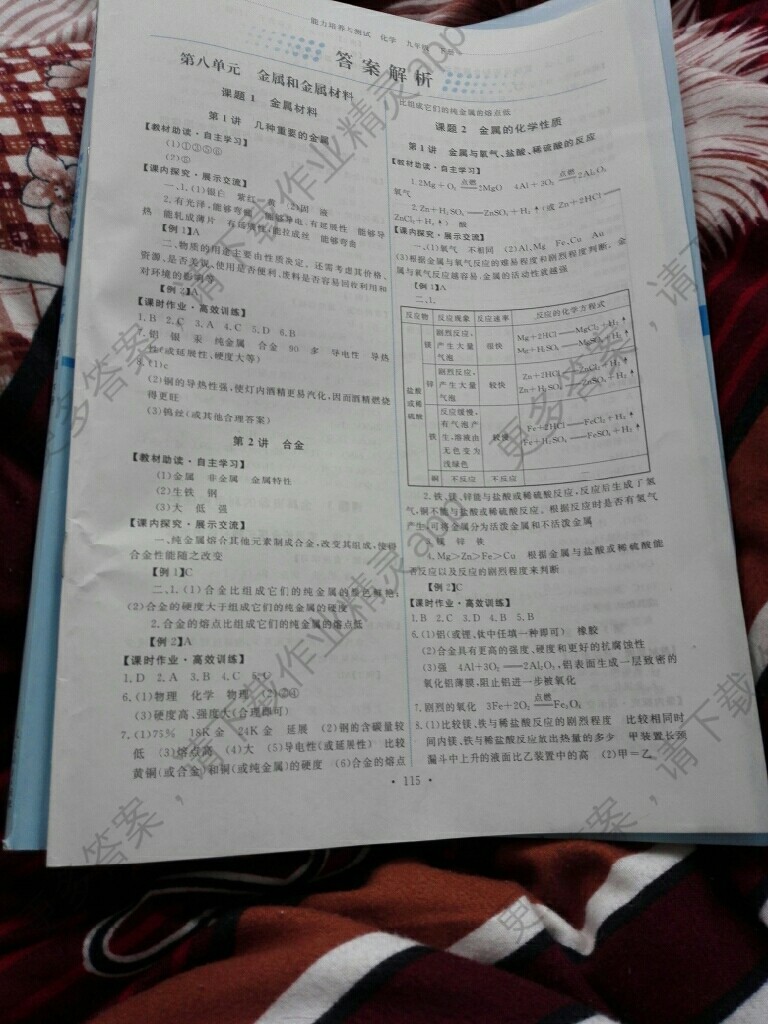 能力培养与测试 化学 九年级 下册
答案解析
第八单元 金属和金属材料
课题1 金属材料
第1讲 几种重要的金属
【教材助读·自主学习】
(1)①③⑤⑥
(2)②
【课内探究·展示交流】
一、1.(1)银白 紫红 黄 (2)固 液
2.有光泽,能够弯曲 能够导电 有延展性 能够导
热 能轧成薄片 有延展性,能拉成丝 能够弯曲
【例1】A
二、物质的用途主要由性质决定。还需考虑其价格、
资源、是否美观、使用是否便利、废料是否容易回收利用和
对环境的影响等
【例2】A
【课时作业·高效训练】
1.B 2.C 3.A 4.C 5.D 6.B
7.铝 银 汞 纯金属 合金 90 多 导电性 导热
性(或延展性、硬度大等)
8.(1)c
(2)铜的导热性强,使灯内酒精更易汽化,因而酒精燃烧
得更旺
(3)钨丝(或其他合理答案)
第2讲 合金
【教材助读·自主学习】
(1)金属 非金属 金属特性
(2)生铁 钢
(3)大 低 强
【课内探究·展示交流】
一、纯金属熔合其他元素制成合金,改变其组成,使得
合金性能随之改变
【例1】C
二、1.(1)合金比组成它们的纯金属的颜色鲜艳;
(2)合金的硬度大于组成它们的纯金属的硬度
2.合金的熔点比组成它们的纯金属的熔点低
【例2】A
【课时作业·高效训练】
1.D 2.A 3.B 4.C 5.C
6.(1)物理 化学 物理 (2)②④
(3)硬度高、强度大(合理即可)
7.(1)75% 18K金 24K金 延展 (2)钢的含碳量较
低 (3)熔点高 (4)大 (5)导电性(或延展性) 比较
黄铜(或合金)和铜(或纯金属)的硬度 (6)合金的熔点
比组成它们的纯金属的熔点低
课题2 金属的化学性质
第1讲 金属与氧气、盐酸、稀硫酸的反应
【教材助读·自主学习】
1.2Mg+O₂ 点燃 2MgO 4Al+3O₂ 点燃 2Al₂O₃
氧气
2.Zn+H₂SO₄——ZnSO₄+H₂↑(或Zn+2HCl——
ZnCl₂+H₂↑) 酸
【课内探究·展示交流】
一、(1)氧气 不相同 (2)Al、Mg Fe、Cu Au
(3)根据金属与氧气反应的难易程度和剧烈程度判断。金
属与氧气反应越容易,金属的活动性就越强
【例1】A
二、1.
反应物 反应现象 反应速率 反应的化学方程式
盐酸或稀硫酸
镁 剧烈反应,产生大量气泡 很快 Mg+2HCl——MgCl₂+H₂↑ Mg+H₂SO₄——MgSO₄+H₂↑
锌 剧烈反应,产生大量气泡 较快 Zn+2HCl——ZnCl₂+H₂↑ Zn+H₂SO₄——ZnSO₄+H₂↑
铁 反应缓慢,有气泡产生,溶液由无色变为浅绿色 较慢 Fe+2HCl——FeCl₂+H₂↑ Fe+H₂SO₄——FeSO₄+H₂↑
铜 不反应 不反应 —
2.铁、镁、锌能与盐酸或稀硫酸反应,反应后生成了氢
气,铜不能与盐酸或稀硫酸反应。根据反应时是否有氢气
产生,可将金属分为活泼金属和不活泼金属
3.镁 锌 铁
4.Mg>Zn>Fe>Cu 根据金属与盐酸或稀硫酸能
否反应以及反应的剧烈程度来判断
【例2】C
【课时作业·高效训练】
1.B 2.C 3.D 4.B 5.B
6.(1)铝(或锂、钛中任填一种即可) 橡胶
(2)合金具有更高的强度、硬度和更好的抗腐蚀性
(3)强 4Al+3O₂——2Al₂O₃,铝表面生成一层致密的
氧化铝薄膜,阻止铝进一步被氧化
7.剧烈的氧化 3Fe+2O₂ 点燃 Fe₃O₄
8.(1)比较镁、铁与稀盐酸反应的剧烈程度 比较相同时
间内镁、铁与稀盐酸反应放出热量的多少 甲装置长颈
漏斗中上升的液面比乙装置中的高 (2)甲=乙
·115·
更多答案,请下载作业精灵app
更多答案,请下载作业精灵app
更多答案,请下载
更多答案,请下载